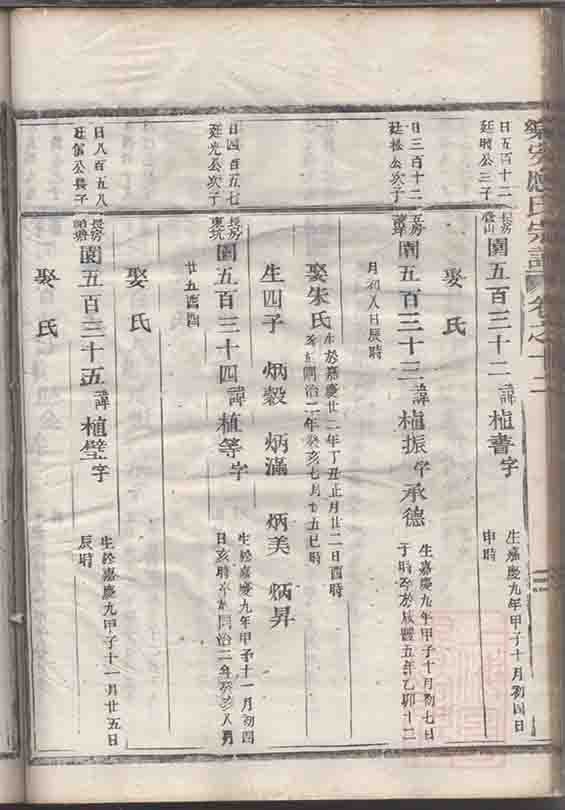 樂安應氏宗譜 卷之十二
日五百十二
廷聘公三子
長房
園五百三十二 諱植書字
生嘉慶九年甲子十月初四日
申時
娶 氏
日三百十二
廷松公次子
園五百三十三 諱植振字承德
生嘉慶九年甲子十月初七日
子時卒於咸豐五年乙卯十二
月初八日辰時
娶朱氏
生於嘉慶廿二年丁丑正月廿二日酉時
卒於同治二年癸亥七月廿五巳時
生四子 炳毅 炳滿 炳美 炳昇
日四百五七
廷光公次子
長房
園五百三十四 諱植等字
生於嘉慶九年甲子十一月初四
日亥時卒於同治二年癸亥八月
廿五酉時
娶 氏
日八百五八
公長子
長房
園五百三十五 諱植璧字
生於嘉慶九年甲子十一月廿五日
辰時
娶 氏